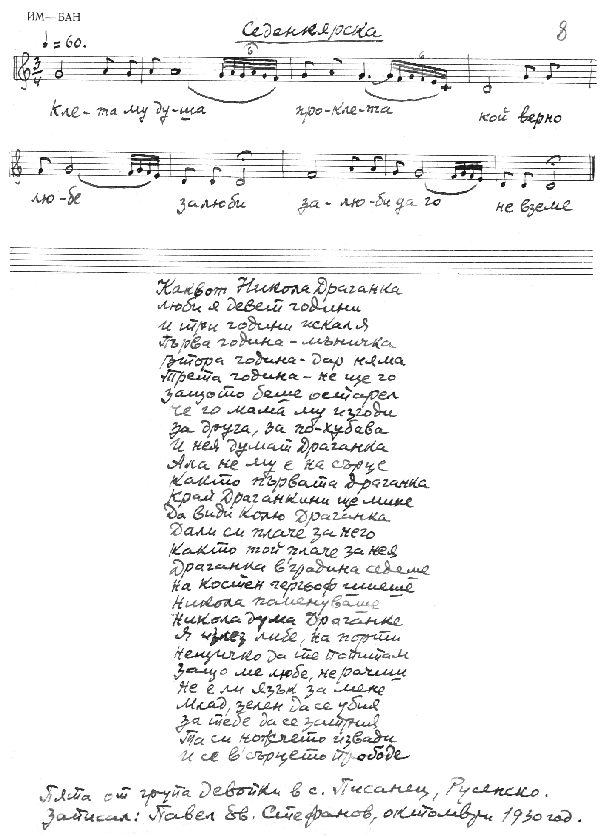 ИМ—БАН
Седенкярска
8
♩=60.
6 6
3/4
Кле-та му ду-ша про-кле-та кой верно
лю-бе залюби за-лю-би да го не вземе
Каквот Никола Драганка
люби я девет години
и три години искал я
Първа година-мъничка
Втора година-дар няма
Трета година-не ще го
защото беше остарел
че го мама му изгоди
за друга, за по-хубава
И нея думат Драганка
Ала не му е на сърце
както първата Драганка
Край Драганкини ще мине
Да види Колю Драганка
Дали си плаче за него
както той плаче за нея
Драганка в градина седеше
на костен гергьоф шиеше
Никола поменуваше
Никола дума Драганке
Я излез либе, на порти
нещичко да те попитам
защо ме любе, не рачиш
не е ли язък за мене
Млад, зелен да се убия
за тебе да се затрия
Та си ножчето извади
И се в сърцето прободе
Пята от група девойки в с. Писанец, Русенско.
Записал: Павел Ев. Стефанов, октомври 1930 год.